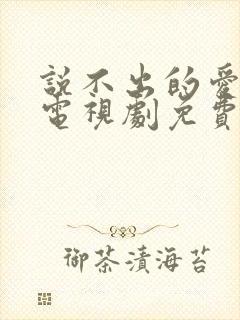 説不出的愛
電視劇免費
御茶漬海苔